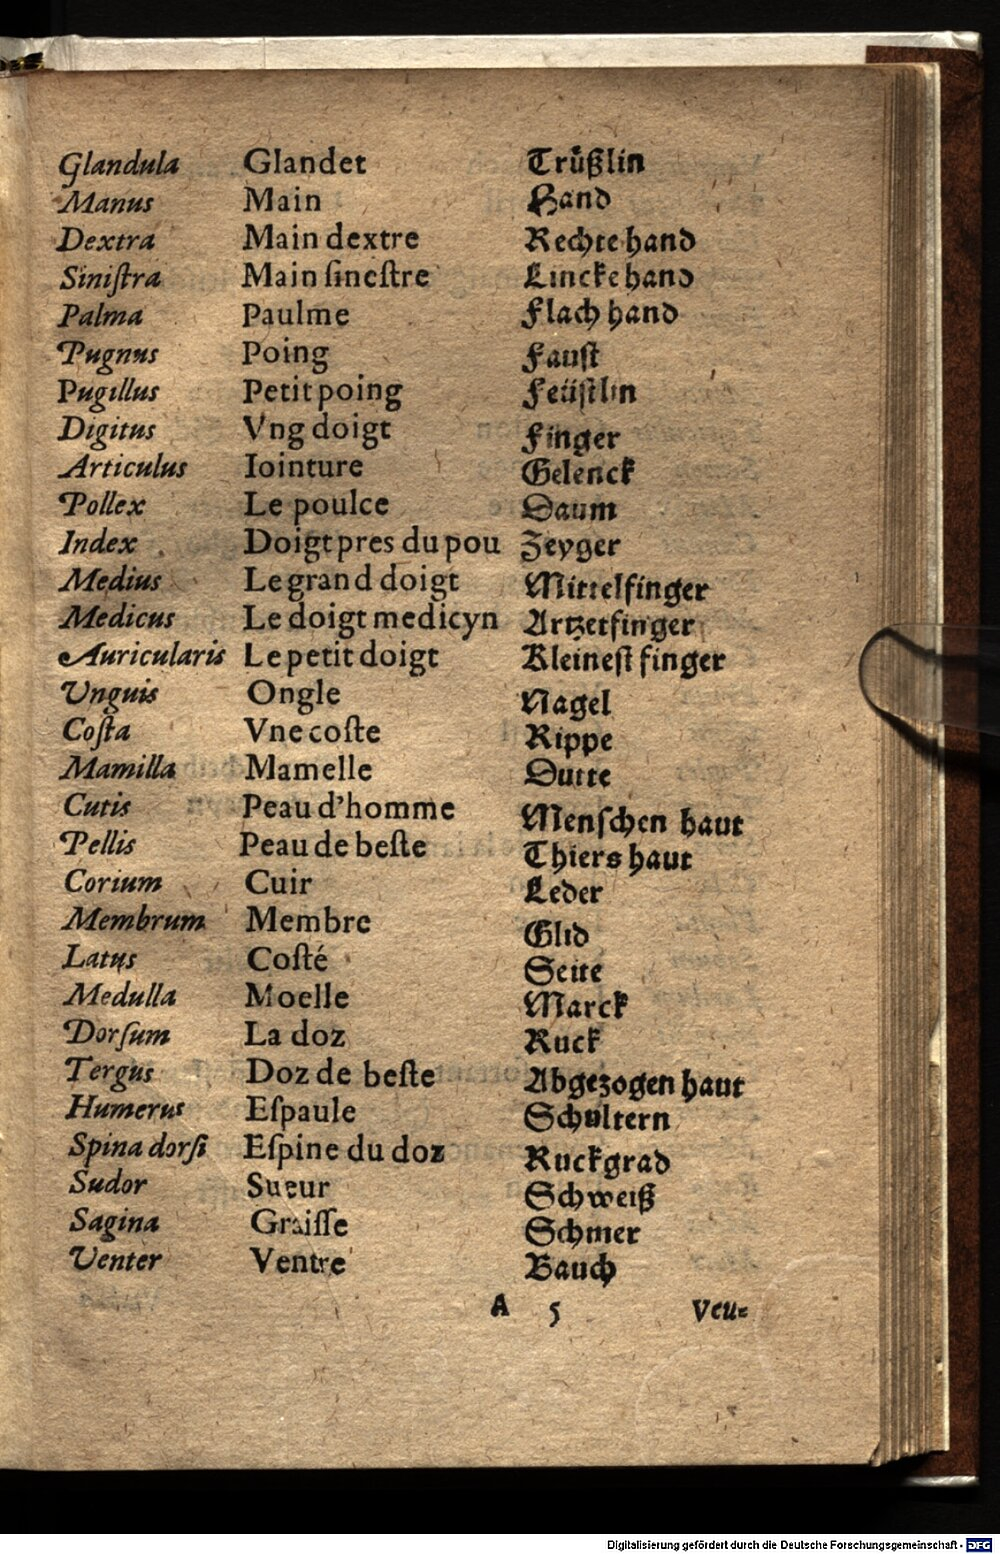 Glandula Glandet Trůßlin
Manus Main Hand
Dextra Main dextre Rechte hand
Siniſtra Main ſineſtre Lincke hand
Palma Paulme Flach hand
Pugnus Poing Fauſt
Pugillus Petit poing Feüſtlin
Digitus Vng doigt Finger
Articulus Iointure Gelenck
Pollex Le poulce Daum
Index Doigt pres du pou Zeyger
Medius Le grand doigt Mittelfinger
Medicus Le doigt medicyn Artzetfinger
Auricularis Le petit doigt Kleineſt finger
Vnguis Ongle Nagel
Coſta Vne coſte Rippe
Mamilla Mamelle Dutte
Cutis Peau d'homme Menſchen haut
Pellis Peau de beſte Thiers haut
Corium Cuir Leder
Membrum Membre Glid
Latus Coſté Seite
Medulla Moelle Marck
Dorſum La doz Ruck
Tergus Doz de beſte Abgezogen haut
Humerus Eſpaule Schultern
Spina dorſi Eſpine du doz Ruckgrad
Sudor Sueur Schweiß
Sagina Graiſſe Schmer
Venter Ventre Bauch
A 5 Veu⸗
Digitalisierung gefördert durch die Deutsche Forschungsgemeinschaft - DFG